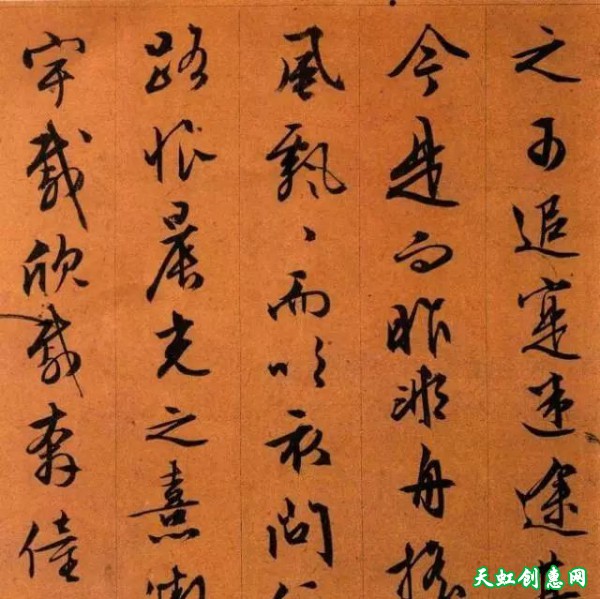 之可追寔迷途
今是而昨非舟搖
風飄〻而吹衣問
路恨晨光之熹微
宇載欣載奔僮
天虹创惠网